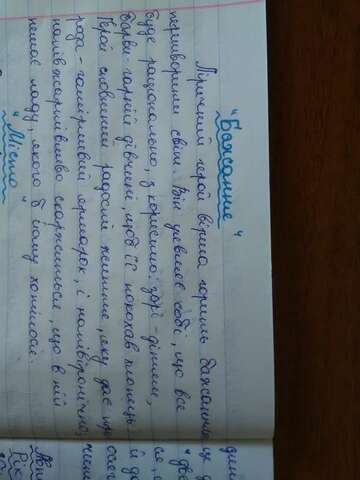 "Бажання"
Ліричний герой вірша горить бажанням
перетворити світ. Він уявляє собі, що все
буде раціонально, з користю: зорі - дітям,
барви - гарній дівчині, щоб її покохав хлопець.
Герой сповнений радості життя, яку дає при-
рода - галасливий ярмарок, і напівіронічно,
напівжартівливо скаржиться, що в ній
немає ладу, якого б йому хотілося.
"Місто"